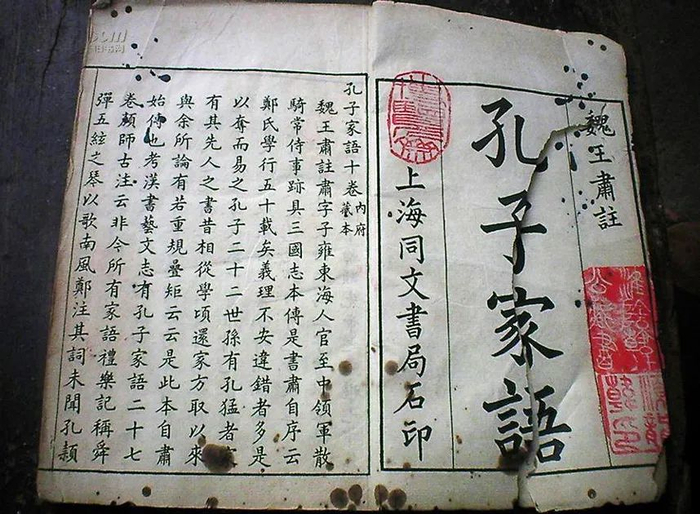 魏王肅註
孔子家語
上海同文書局石印
孔子家語十卷 內府藏本
魏王肅註肅字子雍東海人官至中領軍散
騎常侍事跡具三國志本傳是書肅自序云
鄭氏學行五十載矣義理不安違錯者多是
以奪而易之孔子二十二世孫有孔猛者
有其先人之書昔相從學頃還家方取以來
與余所論有若重規疊矩云云是此本自肅
始傳也考漢書藝文志有孔子家語二十七
卷顏師古注云非今所有家語禮樂記稱舜
彈五絃之琴以歌南風鄭注其詞未聞孔穎